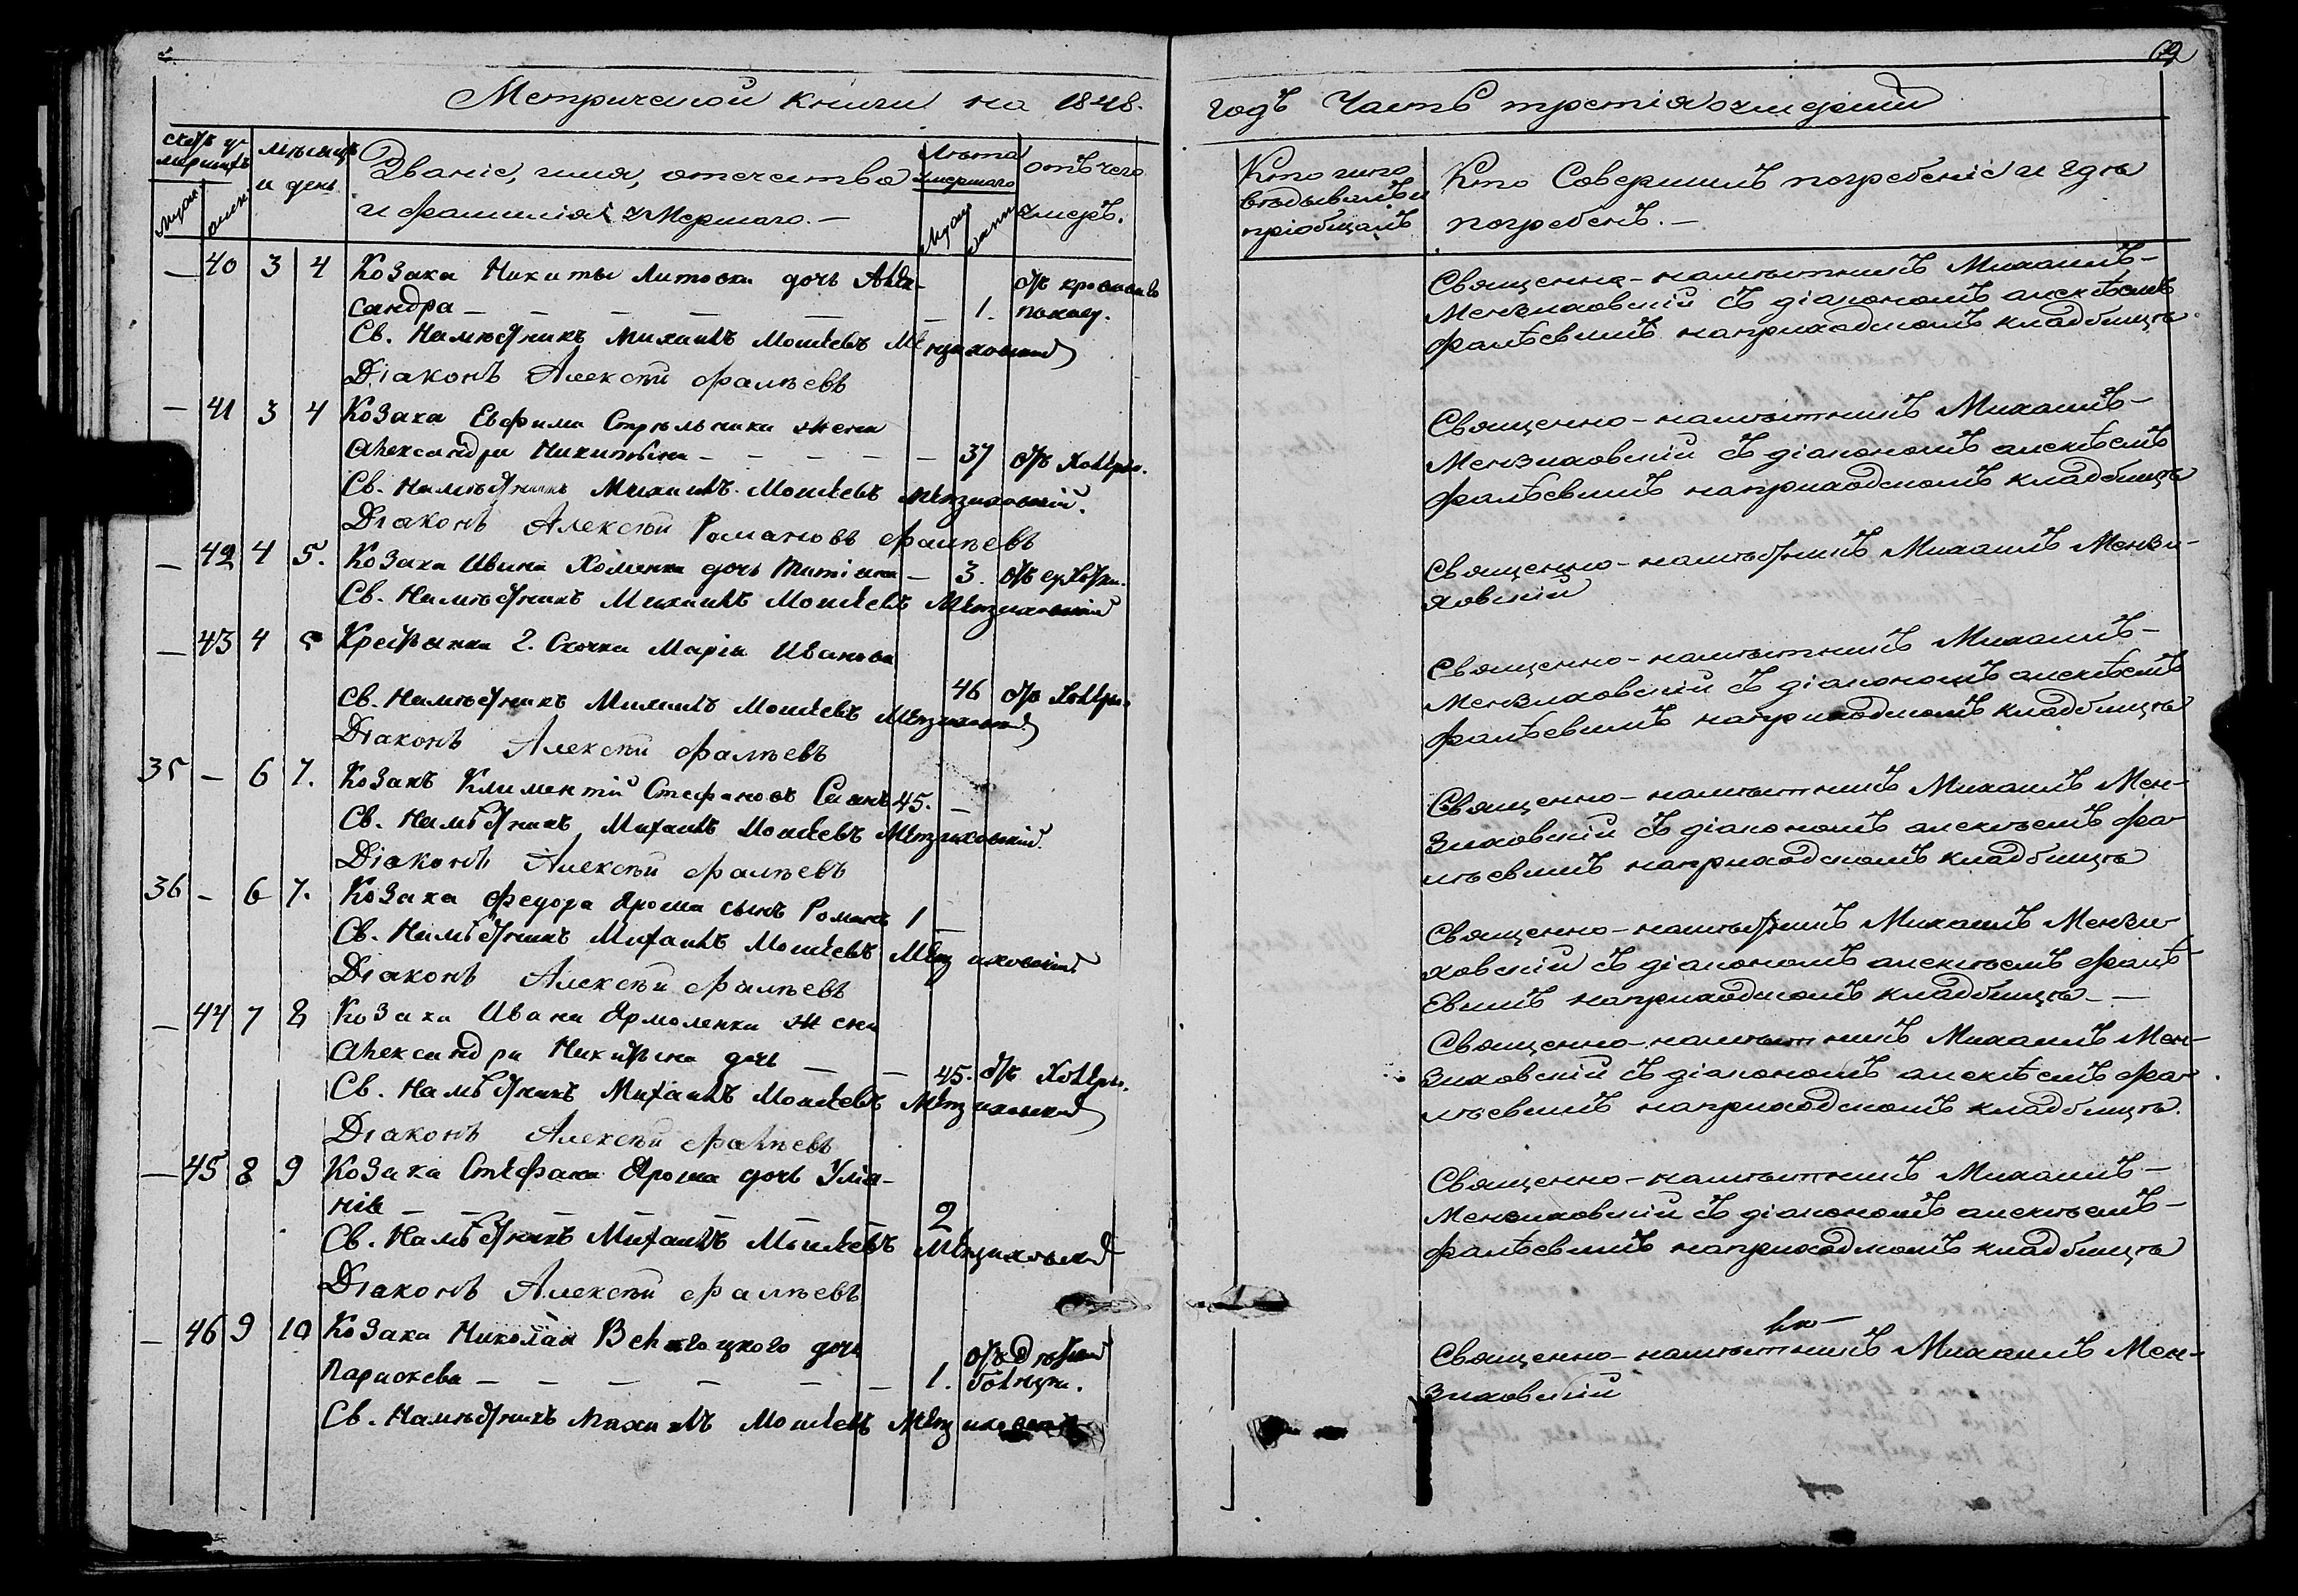 69
Метрической книги на 1848.
годъ Часть третія о умершихъ
счетъ у-
мершихъ
муж.
женс.
мѣсяцъ
и день
Званіе, имя, отечество
и фамилія умершаго. —
Лѣта
умершаго
муж.
женс.
отъ чего
умеръ.
Кто ихъ
исповѣдывалъ и
пріобщалъ
Кто Совершилъ погребеніе и гдѣ
погребенъ. —
— 40 3 4 Козака Никиты дочь Алек-
сандра — — — — — 1. отъ
Св. Намѣстникъ Михаилъ Моисеевъ Мензиховскій
Діаконъ Алексѣй Фалѣевъ
Священно-намѣстникъ Михаилъ-
Мензиховскій съ діакономъ алексѣемъ
фалѣевымъ на приходскомъ кладбищѣ.
— 41 3 4 Козака Евфима Стрельника жена
Александра Никитина — — — — — 37 отъ Холеры.
Св. Намѣстникъ Михаилъ Моисеевъ Мензиховскій.
Діаконъ Алексѣй Романовъ Фалѣевъ
Священно-намѣстникъ Михаилъ-
Мензиховскій съ діакономъ алексѣемъ
фалѣевымъ на приходскомъ кладбищѣ
— 42 4 5. Козака Ивана Хоменка дочь Татіана — 3. отъ
Св. Намѣстникъ Михаилъ Моисеевъ Мензиховскій
Священно-намѣстникъ Михаилъ Мензи-
ховскій
— 43 4 5 Крестьянка г. Скочка Марія Иванова
46 отъ Холеры.
Св. Намѣстникъ Михаилъ Моисеевъ Мензиховскій
Діаконъ Алексѣй Фалѣевъ
Священно-намѣстникъ Михаилъ-
Мензиховскій съ діакономъ алексѣемъ
фалѣевымъ на приходскомъ кладбищѣ
35 — 6 7. Козакъ Климентій Стефановъ 45. —
Св. Намѣстникъ Михаилъ Моисеевъ Мензиховскій.
Діаконъ Алексѣй Фалѣевъ
Священно-намѣстникъ Михаилъ Мен-
зиховскій съ діакономъ алексѣемъ фа-
лѣевымъ на приходскомъ кладбищѣ
36 — 6 7. Козака Федора Яроша сынъ Романъ 1 —
Св. Намѣстникъ Михаилъ Моисеевъ Мензиховскій
Діаконъ Алексѣй Фалѣевъ
Священно-намѣстникъ Михаилъ Мензи-
ховскій съ діакономъ алексѣемъ фалѣ-
евымъ на приходскомъ кладбищѣ — —
— 44 7 8 Козака Ивана Ярмоленка жена
Александра Никитина дочь — — 45. отъ Холеры.
Св. Намѣстникъ Михаилъ Моисеевъ Мензиховскій
Діаконъ Алексѣй Фалѣевъ
Священно-намѣстникъ Михаилъ Мен-
зиховскій съ діакономъ алексѣемъ фа-
лѣевымъ на приходскомъ кладбищѣ.
— 45 8 9 Козака Стефана Яроша дочь Улiа-
нія — — — — — — 2
Св. Намѣстникъ Михаилъ Моисеевъ Мензиховскій
Діаконъ Алексѣй Фалѣевъ
Священно-намѣстникъ Михаилъ-
Мензиховскій съ діакономъ алексѣемъ-
фалѣевымъ на приходскомъ кладбищѣ
— 46 9 10 Козака Николая дочь
Параскева — — — — — — 1. отъ Дѣтской
болѣзни.
Св. Намѣстникъ Михаилъ Моисеевъ Мензиховскій
Священно-намѣстникъ Михаилъ Мен-
зиховскій